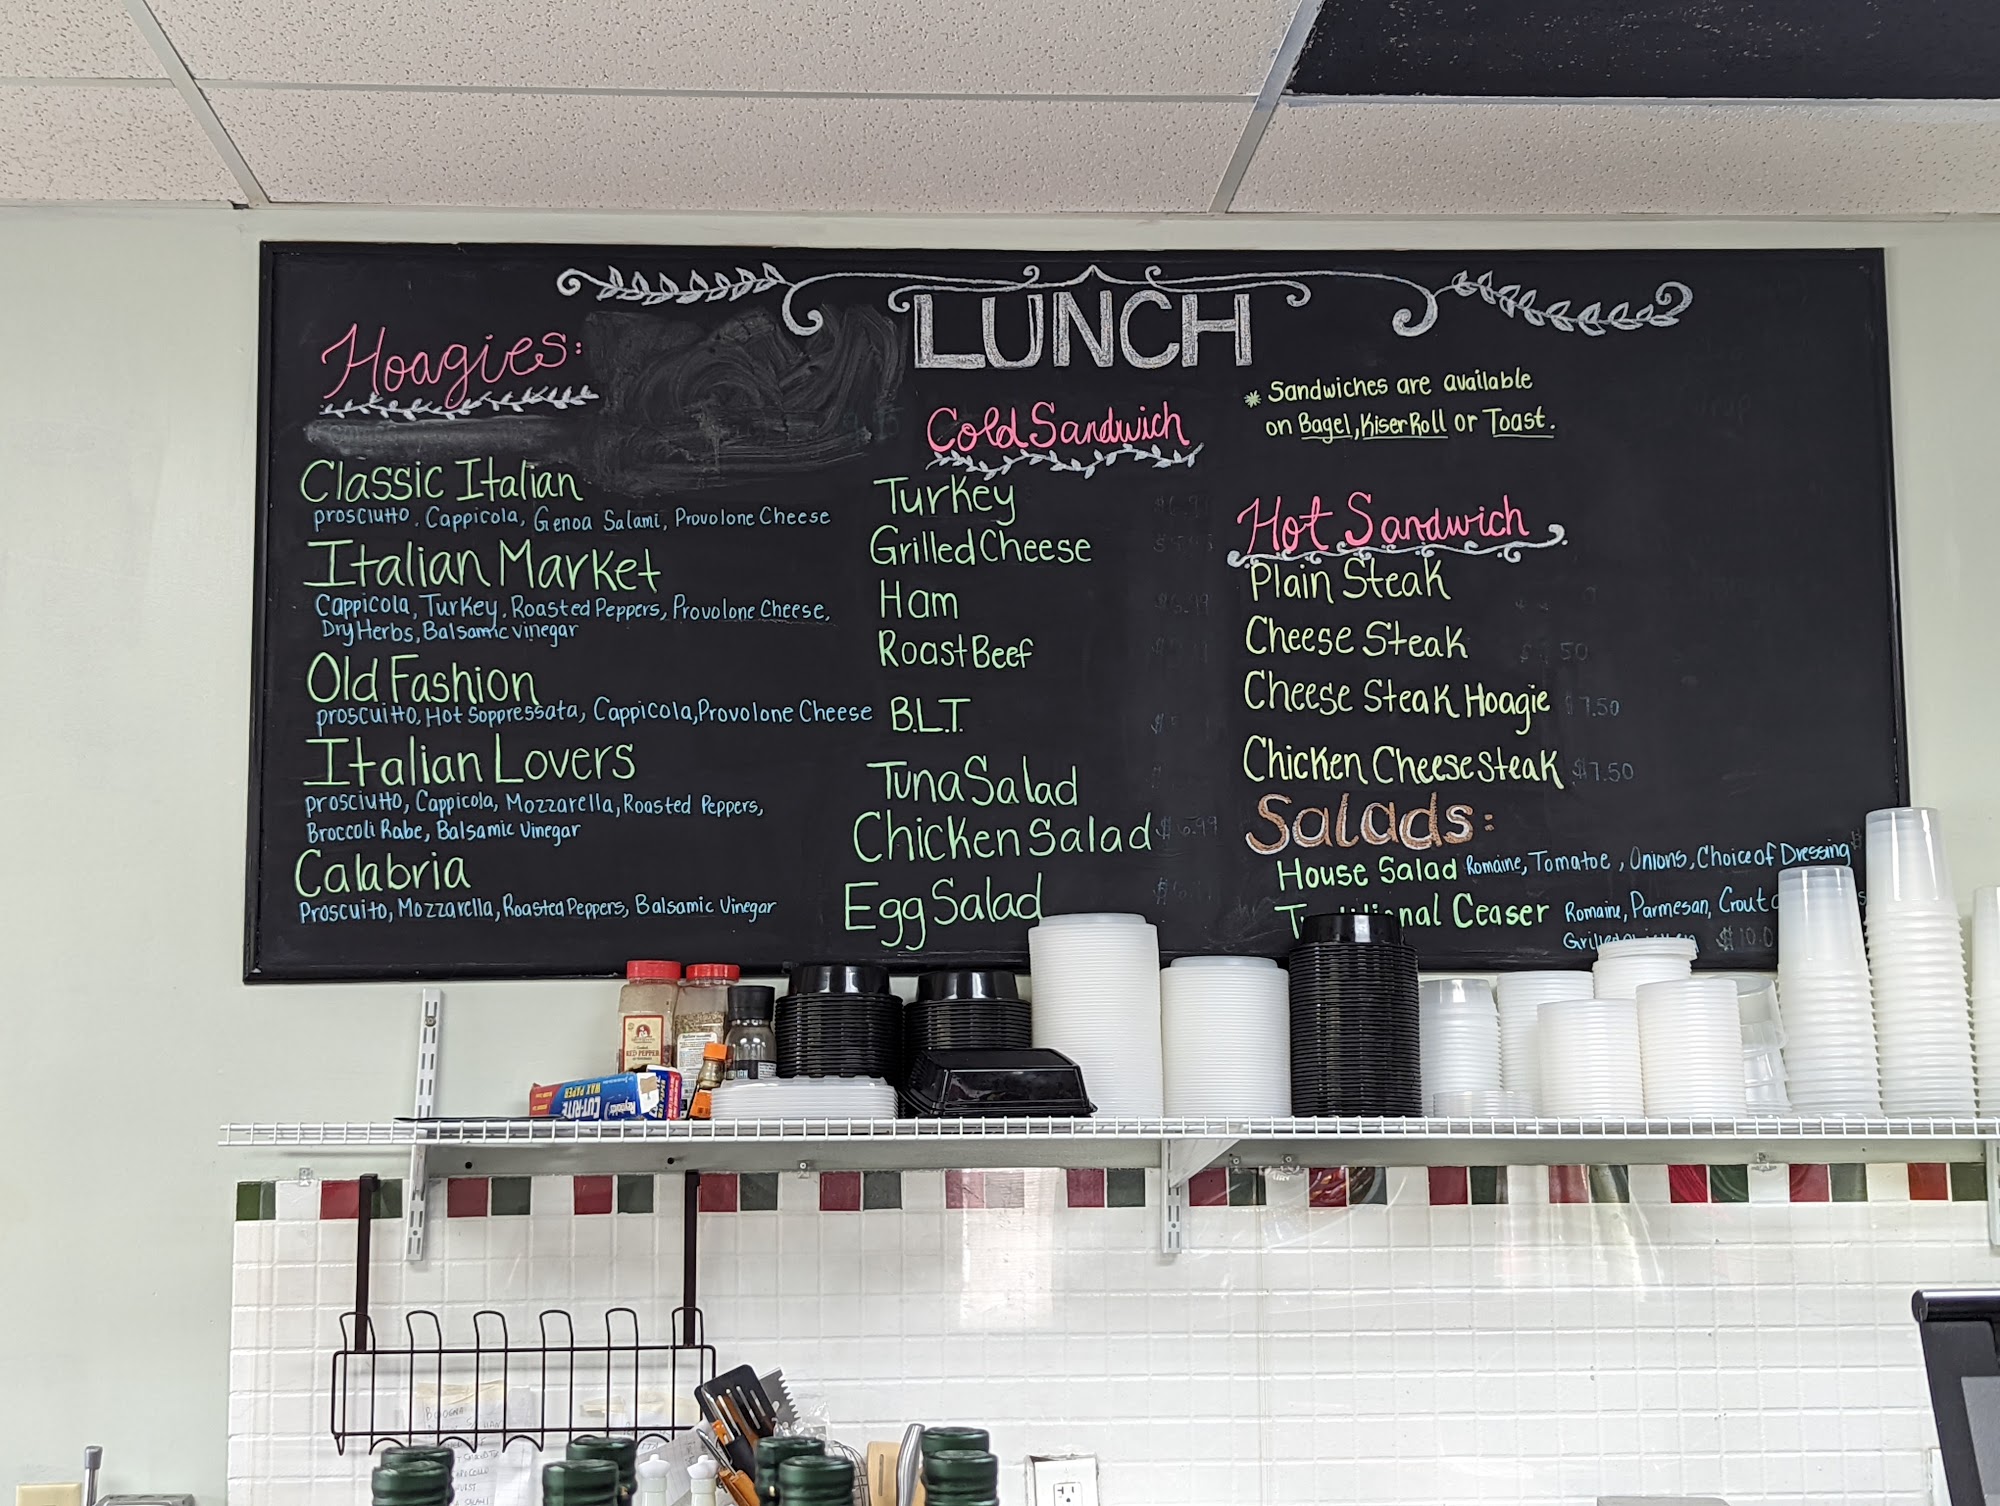 LUNCH
Hoagies:
Classic Italian
Prosciutto, Cappicola, Genoa Salami, Provolone Cheese
Italian Market
Cappicola, Turkey, Roasted Peppers, Provolone Cheese,
Dry Herbs, Balsamic Vinegar
Old Fashion
Proscuitto, Hot Soppressata, Cappicola, Provolone Cheese
Italian Lovers
Prosciutto, Cappicola, Mozzarella, Roasted Peppers,
Broccoli Rabe, Balsamic Vinegar
Calabria
Proscuito, Mozzarella, Roasted Peppers, Balsamic Vinegar
Cold Sandwich
Turkey
Grilled Cheese
Ham
Roast Beef
B.L.T.
Tuna Salad
Chicken Salad $6.99
Egg Salad
* Sandwiches are available
on Bagel, Kiser Roll or Toast.
Hot Sandwich
Plain Steak
Cheese Steak
Cheese Steak Hoagie $7.50
Chicken Cheese Steak $7.50
Salads:
House Salad Romaine, Tomatoe, Onions, Choice of Dressing
Ceaser Romaine, Parmesan,
Grilled
RED PEPPER
CUT-RITE
WAX PAPER
Reynolds